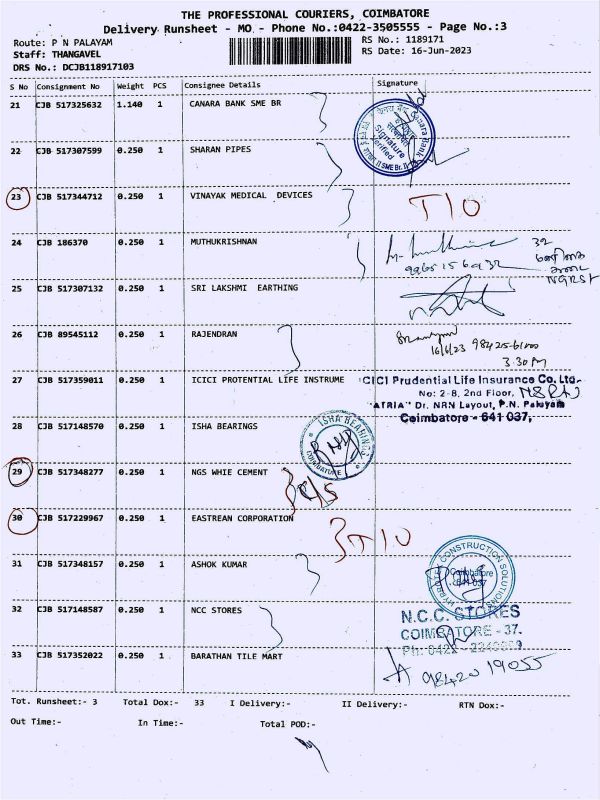 THE PROFESSIONAL COURIERS, COIMBATORE
Delivery Runsheet - MO - Phone No.:0422-3505555 - Page No.:3
Route: P N PALAYAM
RS No.: 1189171
Staff: THANGAVEL
RS Date: 16-Jun-2023
DRS No.: DCJB118917103
S No Consignment No Weight PCS Consignee Details Signature
21 CJB 517325632 1.140 1 CANARA BANK SME BR
Canara Bank
Signature
Verified
SME Br.
22 CJB 517307599 0.250 1 SHARAN PIPES
23 CJB 517344712 0.250 1 VINAYAK MEDICAL DEVICES T10
24 CJB 186370 0.250 1 MUTHUKRISHNAN
32
9965156932
NGRST
25 CJB 517307132 0.250 1 SRI LAKSHMI EARTHING
26 CJB 89545112 0.250 1 RAJENDRAN
16/6/23
3.30 PM
27 CJB 517359011 0.250 1 ICICI PROTENTIAL LIFE INSTRUME
ICICI Prudential Life Insurance Co. Ltd.
No: 2-8, 2nd Floor,
"ATRIA" Dr. NRN Layout, P.N. Palayam
Coimbatore - 641 037.
28 CJB 517148570 0.250 1 ISHA BEARINGS
ISHA BEARINGS
COIMBATORE
29 CJB 517348277 0.250 1 NGS WHIE CEMENT
30 CJB 517229967 0.250 1 EASTREAN CORPORATION T10
31 CJB 517348157 0.250 1 ASHOK KUMAR
CONSTRUCTION SOLUTIONS
Coimbatore
32 CJB 517148587 0.250 1 NCC STORES
N.C.C. STORES
COIMBATORE - 37.
Ph: 0422 -
33 CJB 517352022 0.250 1 BARATHAN TILE MART
9842019055
Tot. Runsheet:- 3 Total Dox:- 33 I Delivery:- II Delivery:- RTN Dox:-
Out Time:- In Time:- Total POD:-